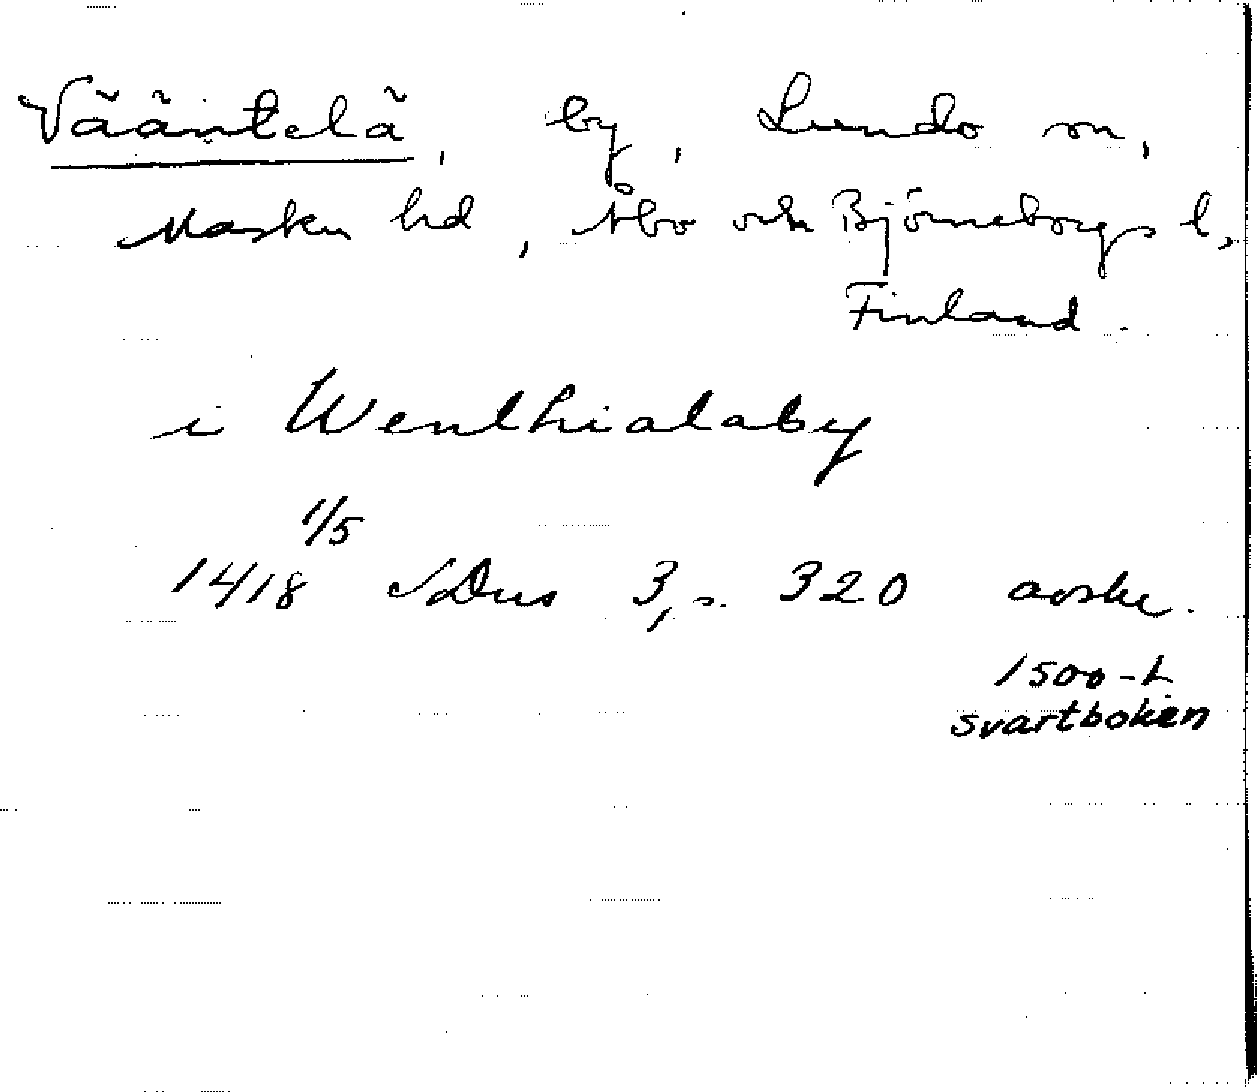 Vääntelä, by, Lundo sn,
Masku hd, Åbo och Björneborgs l,
Finland.
i Wenthialaby
1/5
1418 SDns 3, s. 320 avskr.
1500-t
svartboken